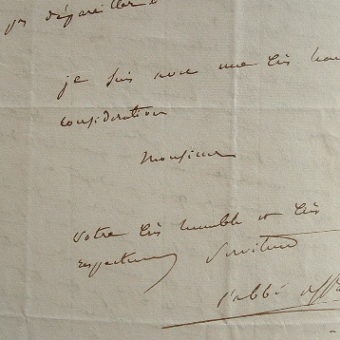 je suis avec une très hau
consideration
Monsieur
votre très humble et très
respectueux Serviteur
l'abbé